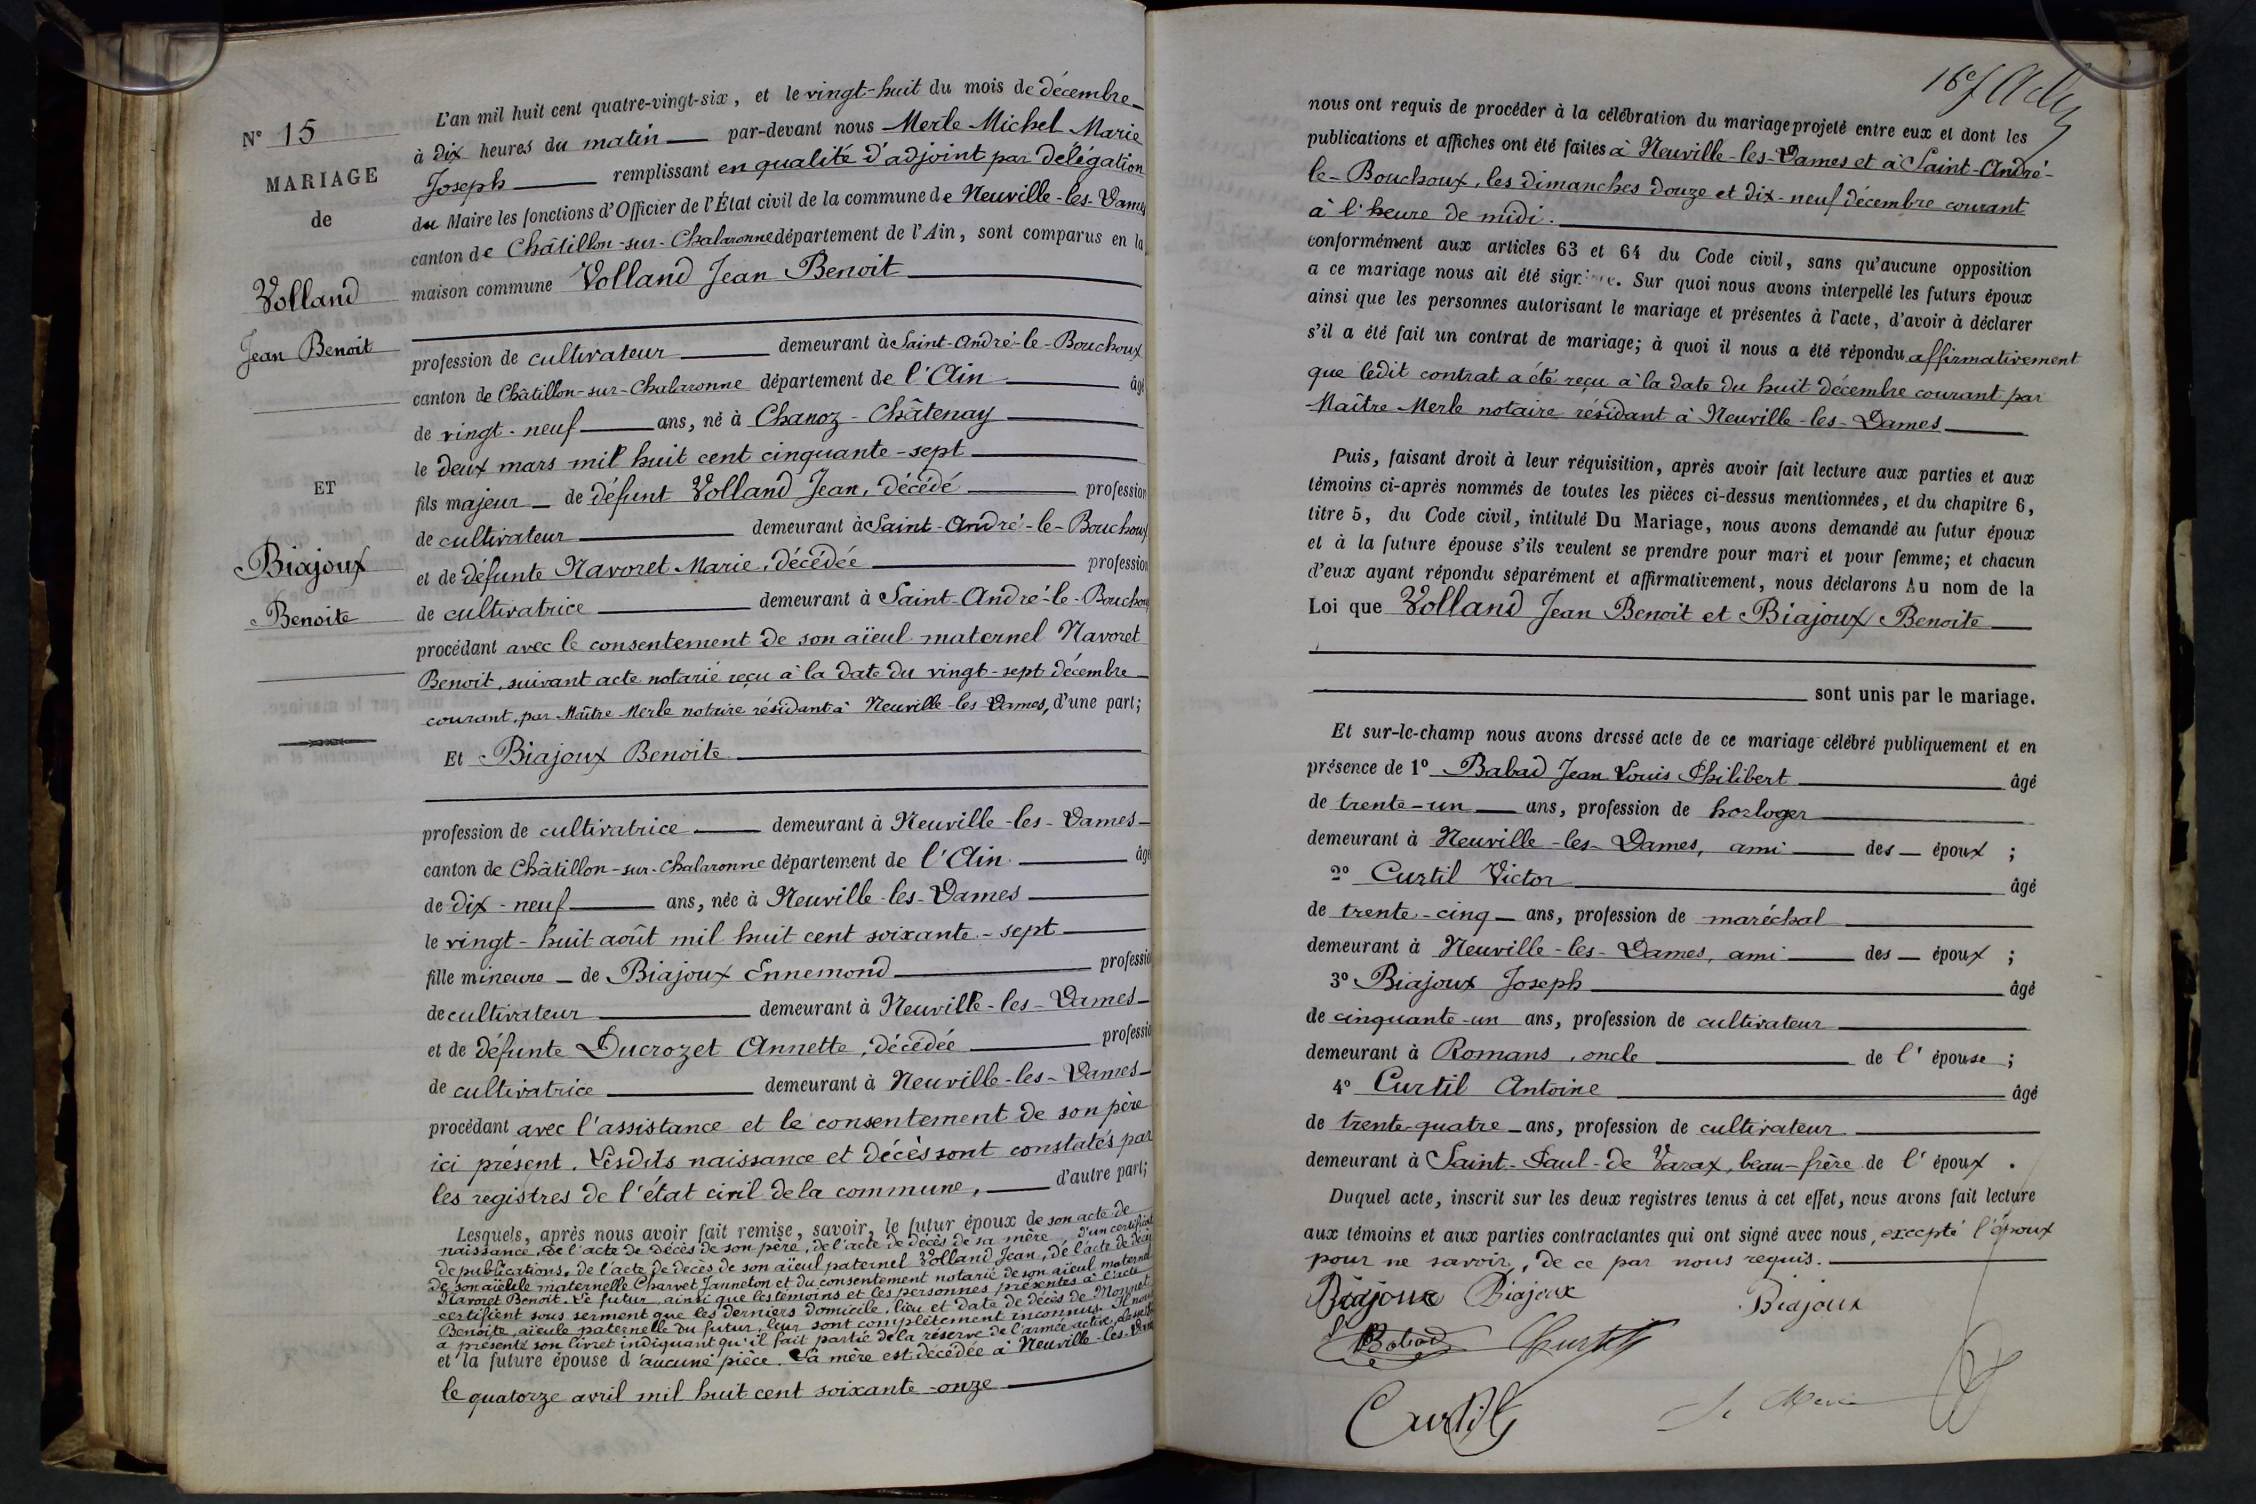 N° 15
MARIAGE
de
Volland
Jean Benoit
ET
Biajoux
Benoite
L'an mil huit cent quatre-vingt-six, et le vingt-huit du mois de décembre
à dix heures du matin par-devant nous Merle Michel Marie
Joseph remplissant en qualité d'adjoint par délégation
du Maire les fonctions d'Officier de l'État civil de la commune de Neuville-les-Dames
canton de Châtillon-sur-Chalaronne département de l'Ain, sont comparus en la
maison commune Volland Jean Benoit
profession de cultivateur demeurant à Saint-André-le-Bouchoux
canton de Châtillon-sur-Chalaronne département de l'Ain âgé
de vingt-neuf ans, né à Chanoz-Châtenay
le deux mars mil huit cent cinquante-sept
fils majeur de défunt Volland Jean, décédé profession
de cultivateur demeurant à Saint-André-le-Bouchoux
et de défunte Navoret Marie, décédée profession
de cultivatrice demeurant à Saint-André-le-Bouchoux
procédant avec le consentement de son aïeul maternel Navoret
Benoit, suivant acte notarié reçu à la date du vingt-sept décembre
courant, par Maître Merle notaire résidant à Neuville-les-Dames, d'une part;
Et Biajoux Benoite
profession de cultivatrice demeurant à Neuville-les-Dames
canton de Châtillon-sur-Chalaronne département de l'Ain âgé
de dix-neuf ans, née à Neuville-les-Dames
le vingt-huit août mil huit cent soixante-sept
fille mineure de Biajoux Ennemond profession
de cultivateur demeurant à Neuville-les-Dames
et de défunte Ducrozet Annette, décédée profession
de cultivatrice demeurant à Neuville-les-Dames
procédant avec l'assistance et le consentement de son père
ici présent. Lesdits naissance et décès sont constatés par
les registres de l'état civil de la commune, d'autre part;
Lesquels, après nous avoir fait remise, savoir, le futur époux de son acte de
naissance, de l'acte de décès de son père, de l'acte de décès de sa mère, d'un certificat
de publications, de l'acte de décès de son aïeul paternel Volland Jean, de l'acte de décès
de son aïeule maternelle Charvet Jauneton et du consentement notarié de son aïeul maternel
Navoret Benoit. Le futur, ainsi que les témoins et les personnes présentes à l'acte
certifient sous serment que les derniers domicile, lieu et date de décès de Monnet
Benoite, aïeule paternelle du futur, leur sont complètement inconnus. Il nous
a présenté son livret indiquant qu'il fait partie de la réserve de l'armée active,
et la future épouse d'aucune pièce. Sa mère est décédée à Neuville-les-Dames
le quatorze avril mil huit cent soixante-onze
nous ont requis de procéder à la célébration du mariage projeté entre eux et dont les
publications et affiches ont été faites à Neuville-les-Dames et à Saint-André-
le-Bouchoux, les dimanches douze et dix-neuf décembre courant
à l'heure de midi.
conformément aux articles 63 et 64 du Code civil, sans qu'aucune opposition
a ce mariage nous ait été signifiée. Sur quoi nous avons interpellé les futurs époux
ainsi que les personnes autorisant le mariage et présentes à l'acte, d'avoir à déclarer
s'il a été fait un contrat de mariage; à quoi il nous a été répondu affirmativement
que ledit contrat a été reçu à la date du huit décembre courant par
Maître Merle notaire résidant à Neuville-les-Dames
Puis, faisant droit à leur réquisition, après avoir fait lecture aux parties et aux
témoins ci-après nommés de toutes les pièces ci-dessus mentionnées, et du chapitre 6,
titre 5, du Code civil, intitulé Du Mariage, nous avons demandé au futur époux
et à la future épouse s'ils veulent se prendre pour mari et pour femme; et chacun
d'eux ayant répondu séparément et affirmativement, nous déclarons Au nom de la
Loi que Volland Jean Benoit et Biajoux Benoite
sont unis par le mariage.
Et sur-le-champ nous avons dressé acte de ce mariage célébré publiquement et en
présence de 1° Babad Jean Louis Philibert âgé
de trente-un ans, profession de horloger
demeurant à Neuville-les-Dames, ami des époux ;
2° Curtil Victor âgé
de trente-cinq ans, profession de maréchal
demeurant à Neuville-les-Dames, ami des époux ;
3° Biajoux Joseph âgé
de cinquante-un ans, profession de cultivateur
demeurant à Romans, oncle de l'épouse ;
4° Curtil Antoine âgé
de trente-quatre ans, profession de cultivateur
demeurant à Saint-Paul-de Varax, beau-frère de l'époux .
Duquel acte, inscrit sur les deux registres tenus à cet effet, nous avons fait lecture
aux témoins et aux parties contractantes qui ont signé avec nous, excepté l'époux
pour ne savoir, de ce par nous requis.
Biajoux Biajoux Biajoux
Babad Curtil
Curtil